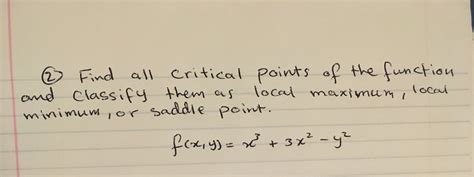 ② Find all critical points of the function
and classify them as local maximum, local
minimum, or saddle point.
f(x,y) = x³ + 3x² - y²